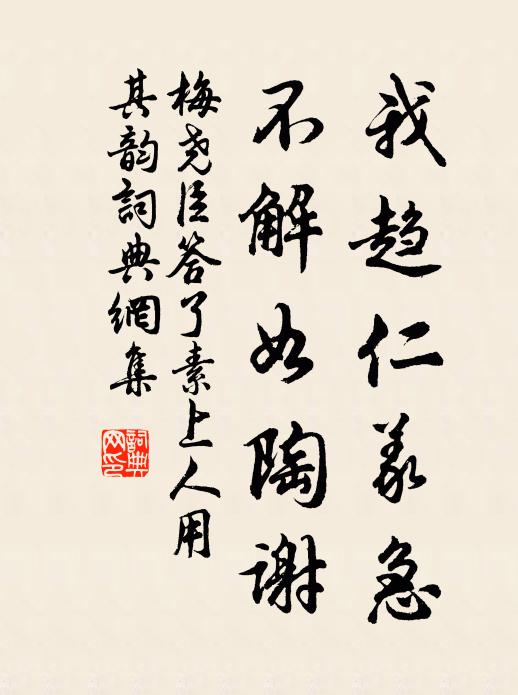 我趋仁義急
不解如陶谢
梅尧臣答了素上人用
其韵詞典網集
詞典
网印